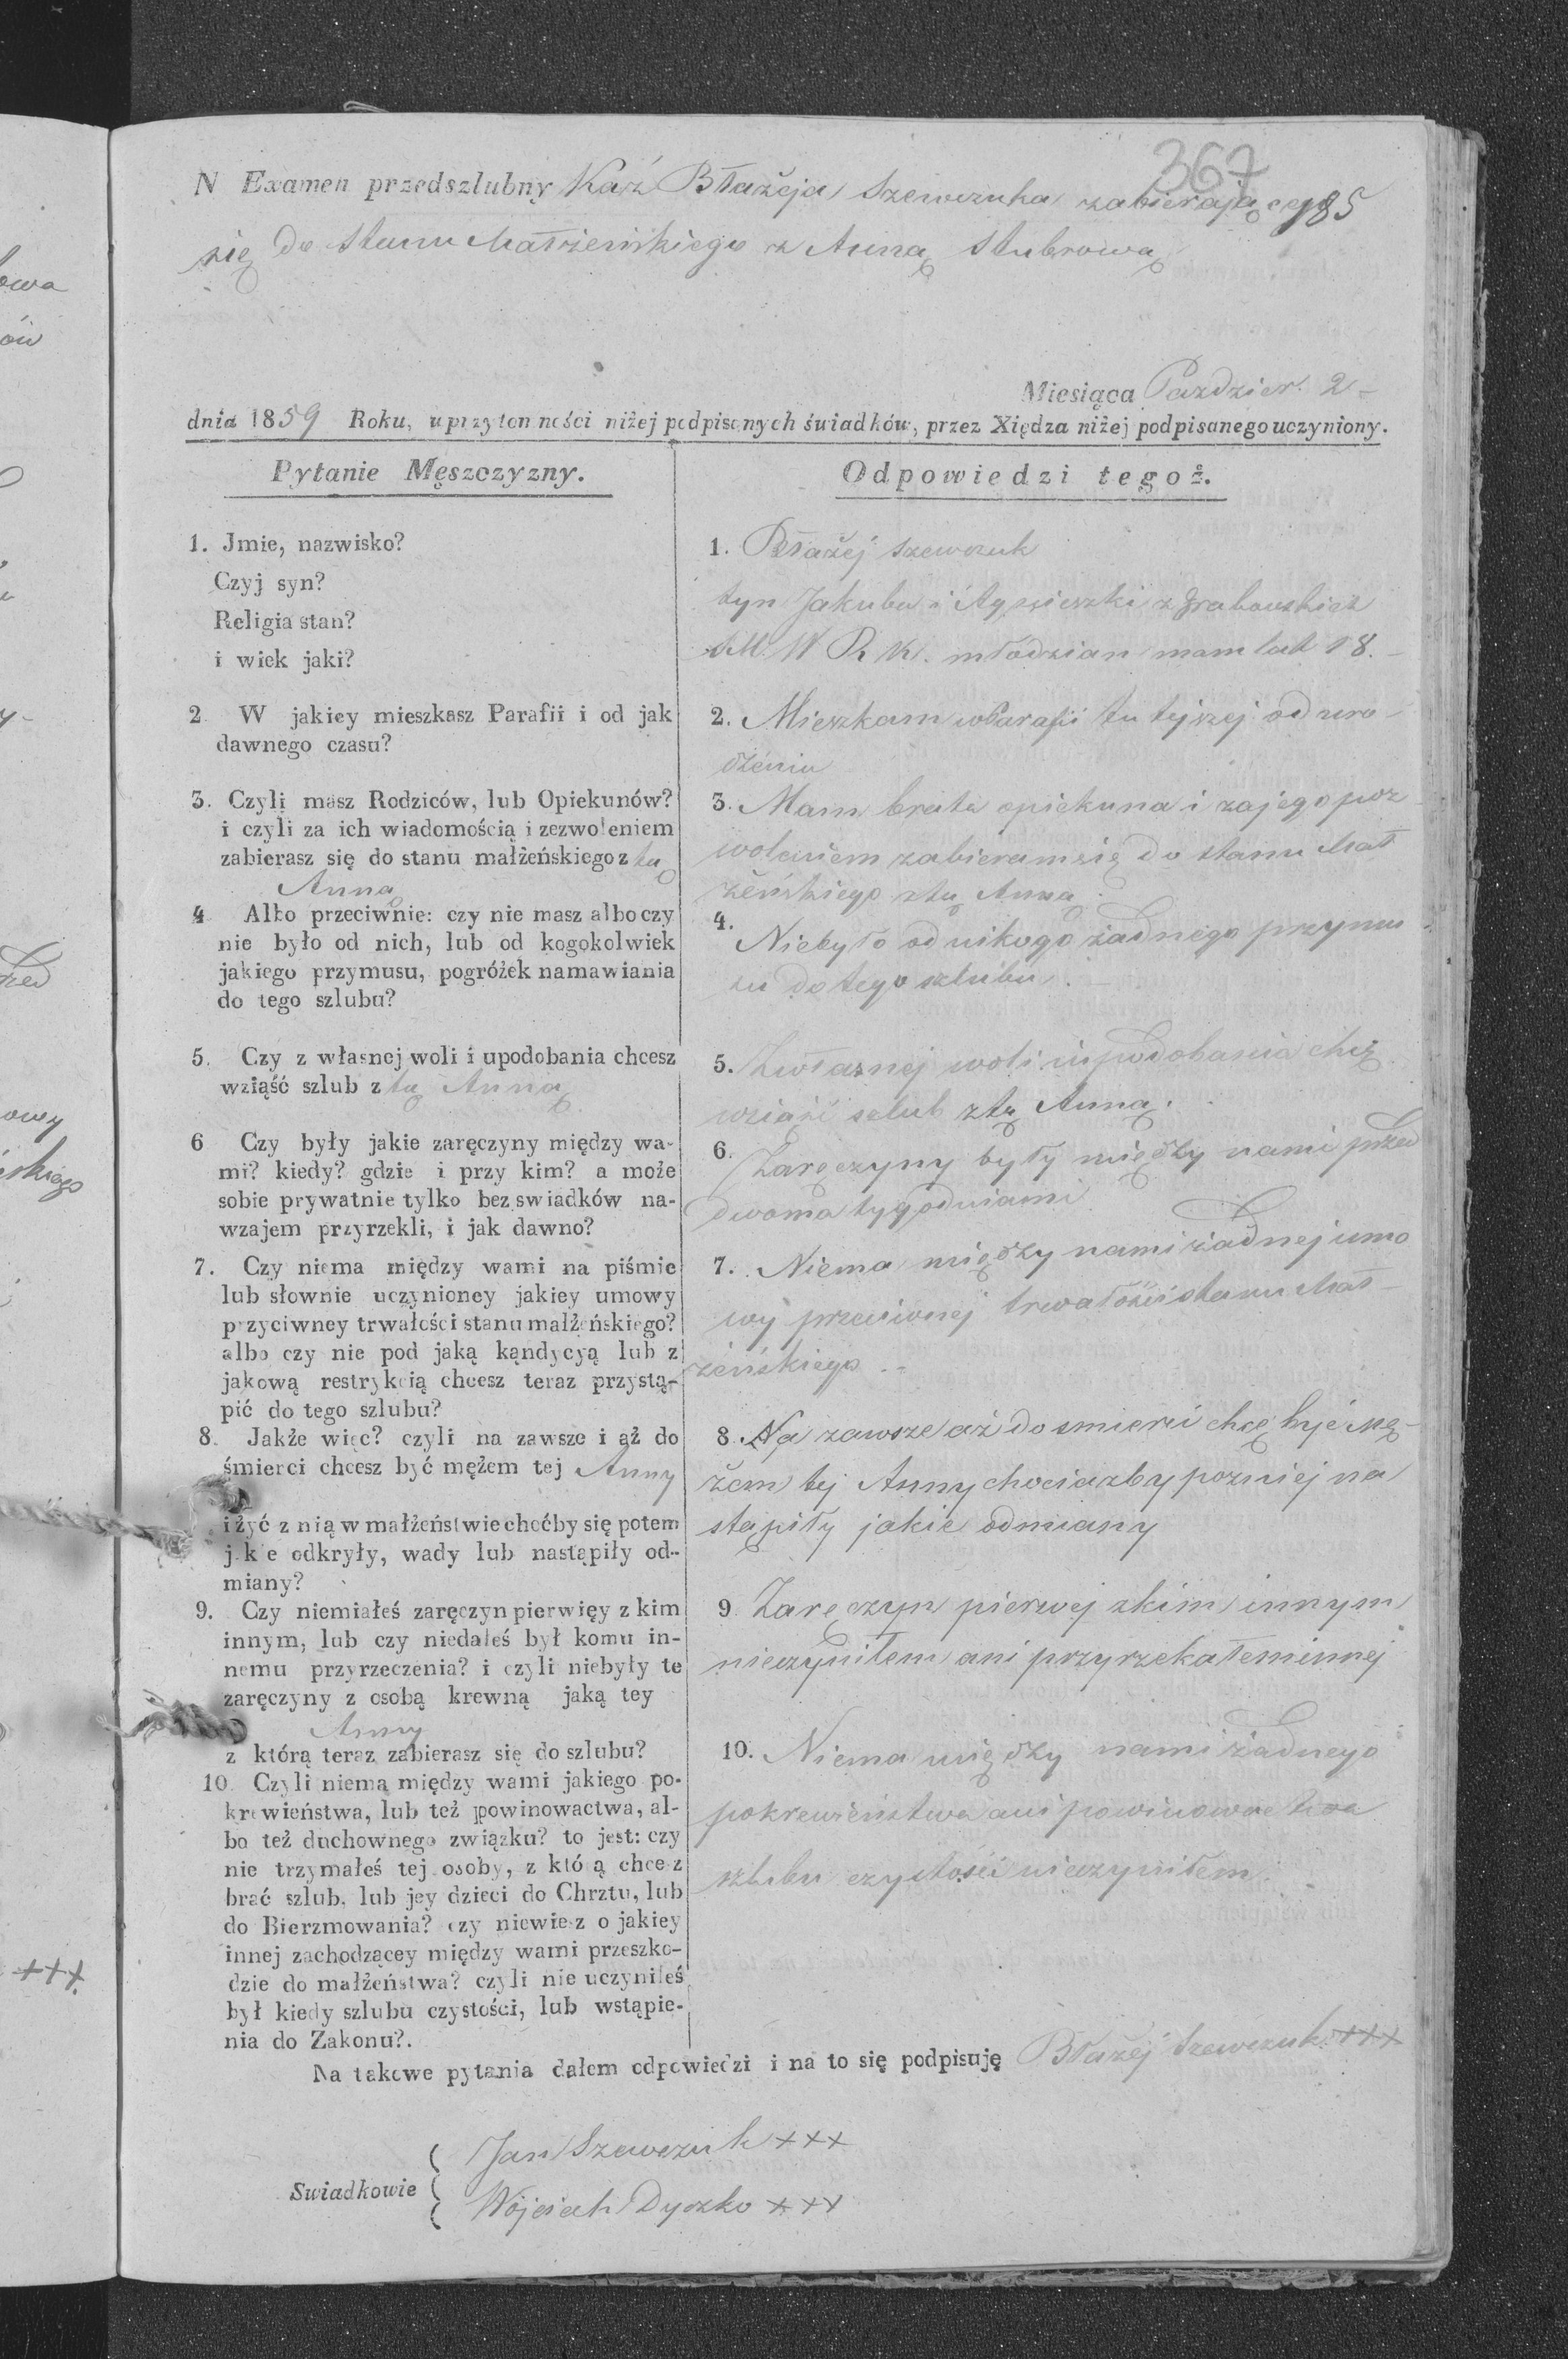 367
N Examen przedszlubny Kaź Błażeja Szewczuka zabierającego 185
się do Stanu Małżeńskiego z Anną Stubrową
Miesiąca Pazdzier. 2 -
dnia 1859 Roku, uprzytomności niżej podpisanych świadków, przez Xiędza niżej podpisanego uczyniony.
Pytanie Męszczyzny.
1. Jmie, nazwisko?
Czyj syn?
Religia stan?
i wiek jaki?
2. W jakiey mieszkasz Parafii i od jak
dawnego czasu?
3. Czyli masz Rodziców, lub Opiekunów?
i czyli za ich wiadomością i zezwoleniem
zabierasz się do stanu małżeńskiego z tą
Anną
4 Albo przeciwnie: czy nie masz albo czy
nie było od nich, lub od kogokolwiek
jakiego przymusu, pogróżek namawiania
do tego szlubu?
5. Czy z własnej woli i upodobania chcesz
wziąść szlub z tą Anną
6 Czy były jakie zaręczyny między wa-
mi? kiedy? gdzie i przy kim? a może
sobie prywatnie tylko bez swiadków na-
wzajem przyrzekli, i jak dawno?
7. Czy niema między wami na piśmie
lub słownie uczynioney jakiey umowy
przyciwney trwałości stanu małżeńskiego?
albo czy nie pod jaką kądycyą lub z
jakową restrykcią chcesz teraz przystą-
pić do tego szlubu?
8. Jakże więc? czyli na zawsze i aż do
śmierci chcesz być mężem tej Anny
i żyć z nią w małżeństwie choćby się potem
jakie odkryły, wady lub nastąpiły od-
miany?
9. Czy niemiałeś zaręczyn pierwięy z kim
innym, lub czy niedałeś był komu in-
nemu przyrzeczenia? i czyli niebyły te
zaręczyny z osobą krewną jaką tey
Anny
z którą teraz zabierasz się do szlubu?
10. Czyli niemą między wami jakiego po-
krewieństwa, lub też powinowactwa, al-
bo też duchownego związku? to jest: czy
nie trzymałeś tej osoby, z którą chcesz
brać szlub, lub jey dzieci do Chrztu, lub
do Bierzmowania? czy niewiesz o jakiey
innej zachodzącey między wami przeszko-
dzie do małżeństwa? czyli nie uczyniłeś
był kiedy szlubu czystości, lub wstąpie-
nia do Zakonu?.
Odpowiedzi tegoż.
1. Błażej Szewczuk
syn Jakuba i Agnieszki z Grabowskich
M W R K. młodzian mam lat 18. -
2. Mieszkam w Parafii tutejszej od uro-
dzeniu
3. Mam brata opiekuna i za jego poz
woleniem zabieram się do stanu Mał
żeńskiego z tą Anną.
4. Niebyło od nikogo żadnego przymu
su do tego szlubu. -
5. Zwłasnej woli i upodobania chcę
wziąść szlub z tą Anną.
6. Zaręczyny były między nami przed
dwoma tygodniami
7. Niema między nami żadnej umo
wy przeciwnej trwałości stanu Mał-
żeńskiego. -
8. Na zawsze aż do smierci chcę być Mę-
żem tej Anny chociażby pozniej na
stąpiły jakie odmiany
9 Zaręczyn pierwej z kim innym
nieczyniłem ani przyrzekałem innej
10. Niema między nami żadnego
pokrewieństwa ani powinowactwa
szlubu czystości nieczyniłem.
Na takowe pytania dałem odpowiedzi i na to się podpisuję Błażej Szewczuk +++
Swiadkowie
Jan Szewczuk +++
Wojciech Dyczko +++
owa
ów
owy
skiego
+++